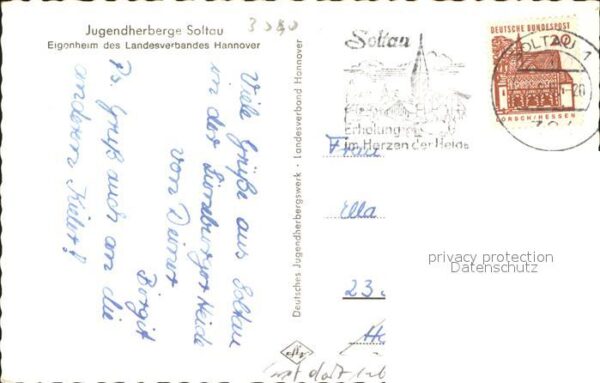 Jugendherberge Soltau
Eigenheim des Landesverbandes Hannover
Viele Grüße aus Soltau
in der Lüneburger Heide
von Deiner
Birgit
Ps. Gruß auch an die
anderen
Deutsches Jugendherbergswerk · Landesverband Hannover
Soltau
Erholung
im Herzen der Heide
DEUTSCHE BUNDESPOST
20
LORSCH/HESSEN
SOLTAU 1
Frau
Ella
23
privacy protection
Datenschutz